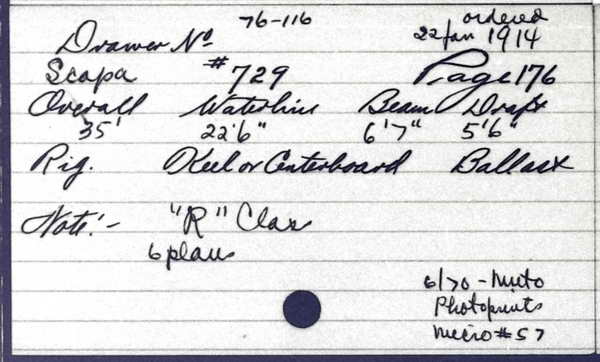 76-116
ordered
Drawer No 22 Jan 1914
Scapa #729 Page 176
Overall Waterline Beam Draft
35' 22'6" 6'7" 5'6"
Rig. Keel or Centerboard Ballast
Note:- "R" Class
6 plans
6/70 - Micro
Photoprints
Micro #57